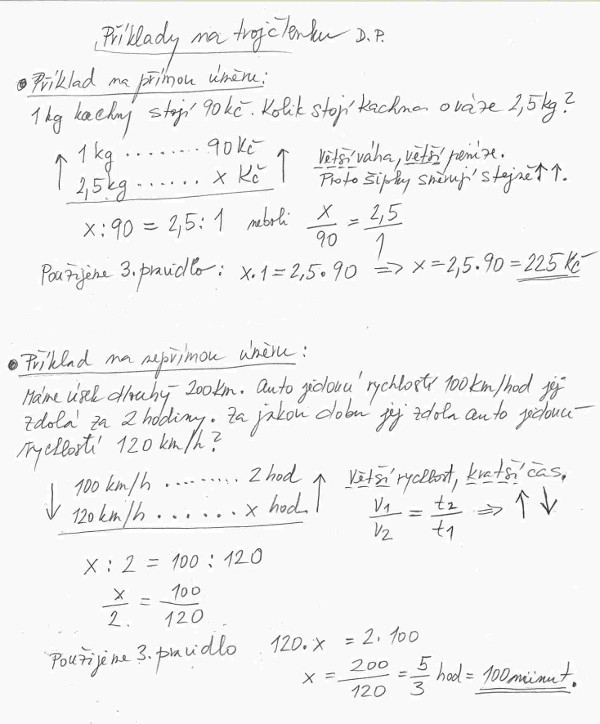 Příklady na trojčlenku D.P.
• Příklad na přímou úměru:
1 kg kachny stojí 90 kč. Kolik stojí kachna o váze 2,5 kg?
↑ 1 kg ........ 90 Kč ↑ Větší váha, větší peníze.
2,5 kg ...... x Kč Proto šipky směřují stejně ↑↑.
x : 90 = 2,5 : 1 neboli x/90 = 2,5/1
Použijeme 3. pravidlo: x·1 = 2,5·90 ⇒ x = 2,5·90 = 225 Kč
• Příklad na nepřímou úměru:
Máme úsek dlouhý 200 km. Auto jedoucí rychlostí 100 km/hod jej
zdolá za 2 hodiny. Za jakou dobu jej zdolá auto jedoucí
rychlostí 120 km/h?
↓ 100 km/h ......... 2 hod ↑ Větší rychlost, kratší čas.
120 km/h ...... x hod. v1/v2 = t2/t1 ⇒ ↑↓
x : 2 = 100 : 120
x/2. = 100/120
Použijeme 3. pravidlo 120.x = 2.100
x = 200/120 = 5/3 hod = 100 minut.